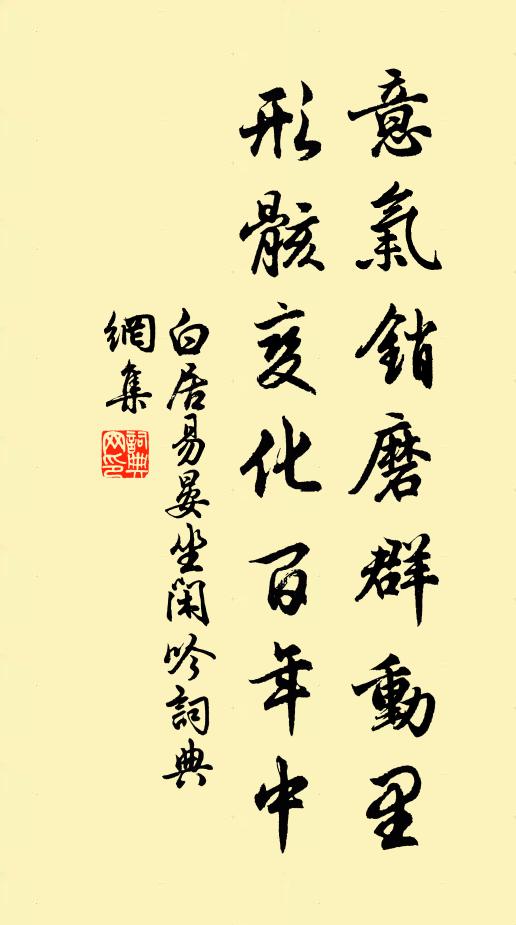 意氣銷磨群動里
形骸變化百年中
白居易晏坐閑吟詞典
網集
詞典
网印